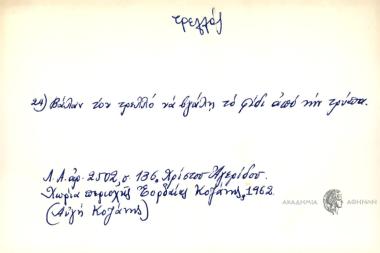 τρελλός
24) Βάλαν τον τρελλό νά βγάλη τό φίδι ἀπό τήν τρύπα.
Λ.Α. ἀρ. 2502, σ. 136, Χρίστου Ἀγερίδου.
Χωρία περιοχῆς Ἐορδαίας Κοζάνης, 1962.
(Αὐγή Κοζάνης)
ΑΚΑΔΗΜΙΑ ΑΘΗΝΩΝ